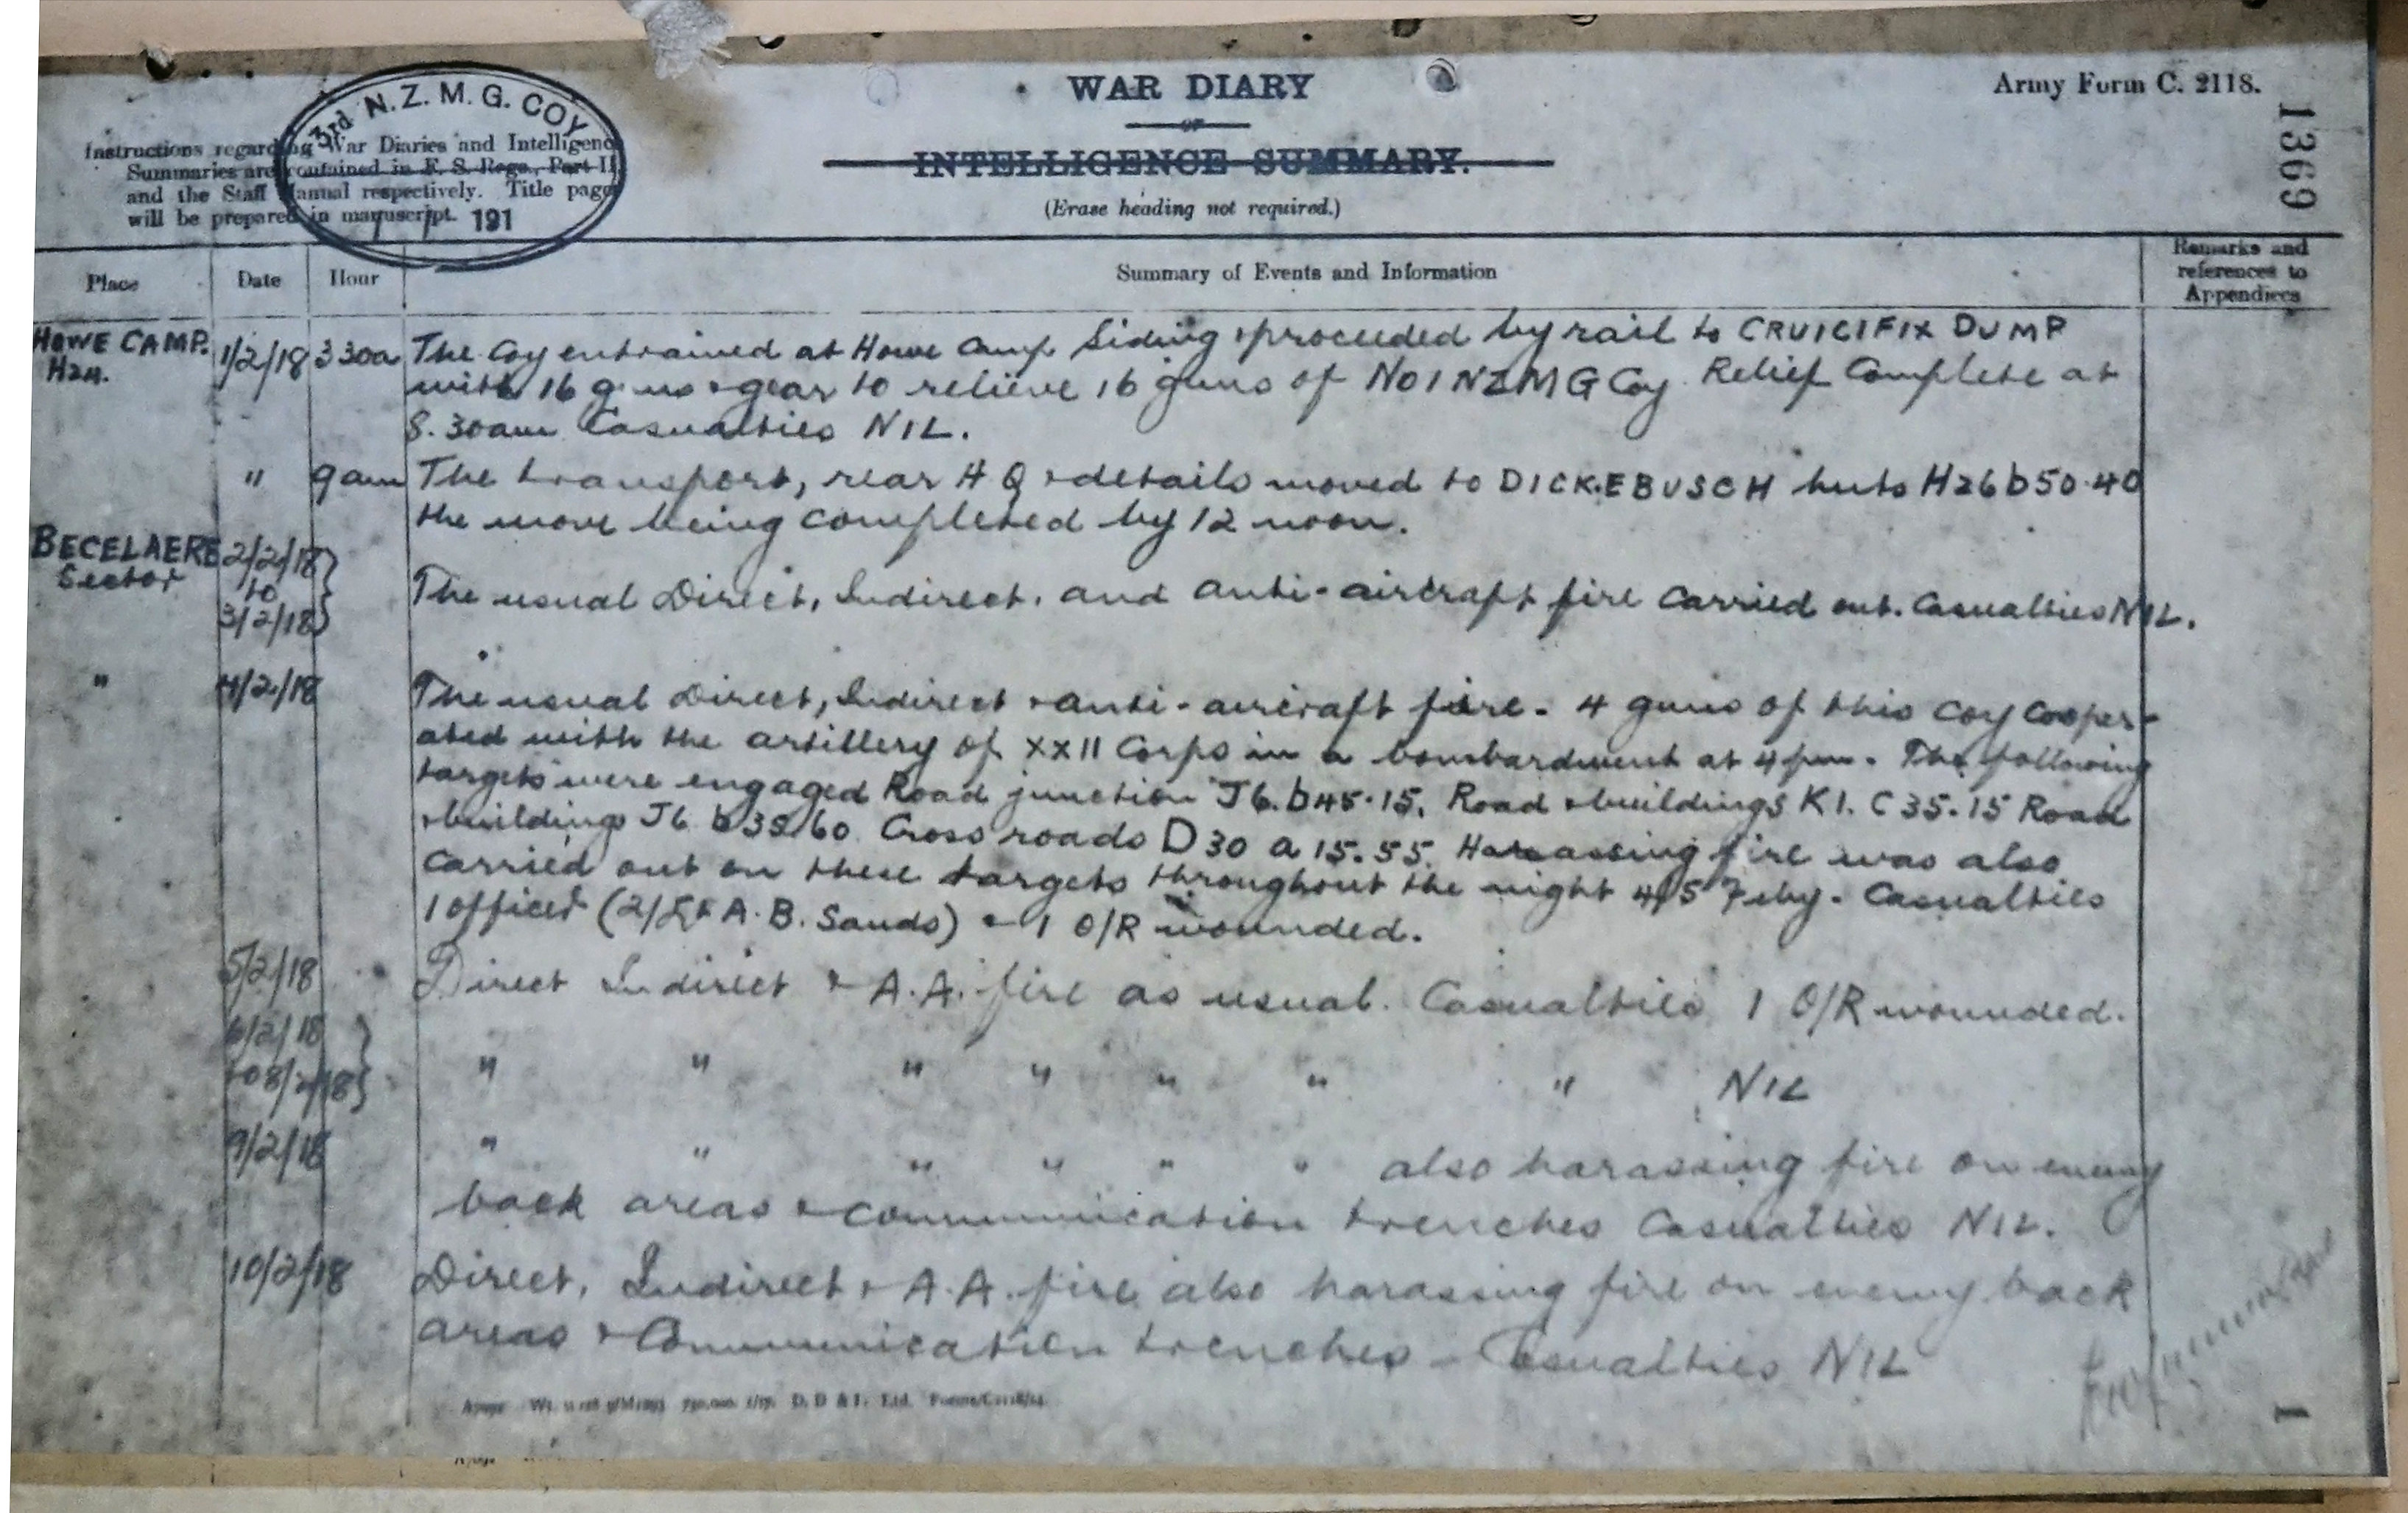 WAR DIARY
or
INTELLIGENCE SUMMARY.
(Erase heading not required.)
Army Form C. 2118.
1369
3rd N.Z.M.G. COY
191
Instructions regarding War Diaries and Intelligence
Summaries are contained in F. S. Regs., Part II
and the Staff Manual respectively. Title pages
will be prepared in manuscript.
Place Date Hour Summary of Events and Information Remarks and
references to
Appendices
HOWE CAMP. 1/2/18 3 30a The Coy entrained at Howe Camp Siding & proceeded by rail to CRUICIFIX DUMP
with 16 guns & gear to relieve 16 guns of No 1 NZMG Coy. Relief Complete at
8.30am Casualties NIL.
" 9am The transport, rear HQ & details moved to DICKEBUSCH huts H26b50.40
the move being completed by 12 noon.
BECELAERE 2/2/18
Sector to The usual Direct, Indirect, and anti-aircraft fire carried out. Casualties NIL.
3/2/18
" 4/2/18 The usual Direct, Indirect & anti-aircraft fire. 4 guns of this Coy Cooper-
ated with the artillery of XXII Corps in a bombardment at 4 pm. The following
targets were engaged Road junction J6.b45.15. Road & buildings K1.C35.15 Road
& buildings J6 b35.60. Cross roads D30 a 15.55. Harassing fire was also
carried out on these targets throughout the night 4/5 Feby. Casualties
1 officer (2/Lt A.B. Sands) & 1 O/R wounded.
5/2/18 Direct Indirect & A.A. fire as usual. Casualties 1 O/R wounded.
6/2/18
to 8/2/18 " " " " " " " NIL
9/2/18 " " " " " " also harassing fire on enemy
back areas & communication trenches Casualties NIL.
10/2/18 Direct, Indirect & A.A. fire also harassing fire on enemy back
areas & Communication trenches - Casualties NIL
D. D & L. Ltd.
1